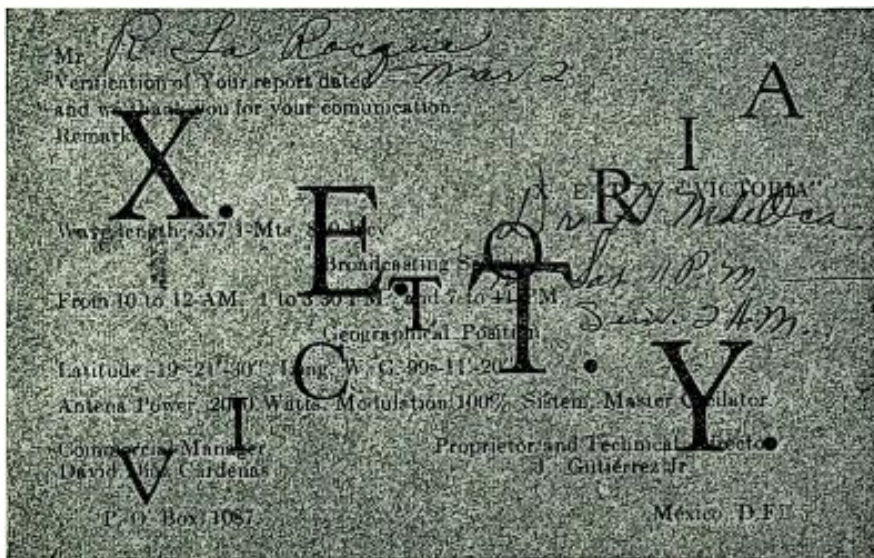 Mr. R La Rocque
Verification of Your report dated Mar 2
and we thank you for your comunication.
Remarks
X. E. T. Y.
VICTORIA
X E T Y "VICTORIA"
Wave length,-357.1-Mts.
Broadcasting
From 10 to 12-AM. 1 to 3 30 P.M. and 7 to 11 P.M.
Sat 11 P.M
Sun. 2 A.M.
Geographical Position
Latitude -19°-21'-30". Long. W. G. 99°-11'-20
Antena Power, 2000 Watts, Modulation 100% Sistem, Master Oscilator
Commercial Manager
David Cardenas
Proprietor and Technical Director
J. Gutiérrez Jr.
P. O. Box 1087.
México D.F.